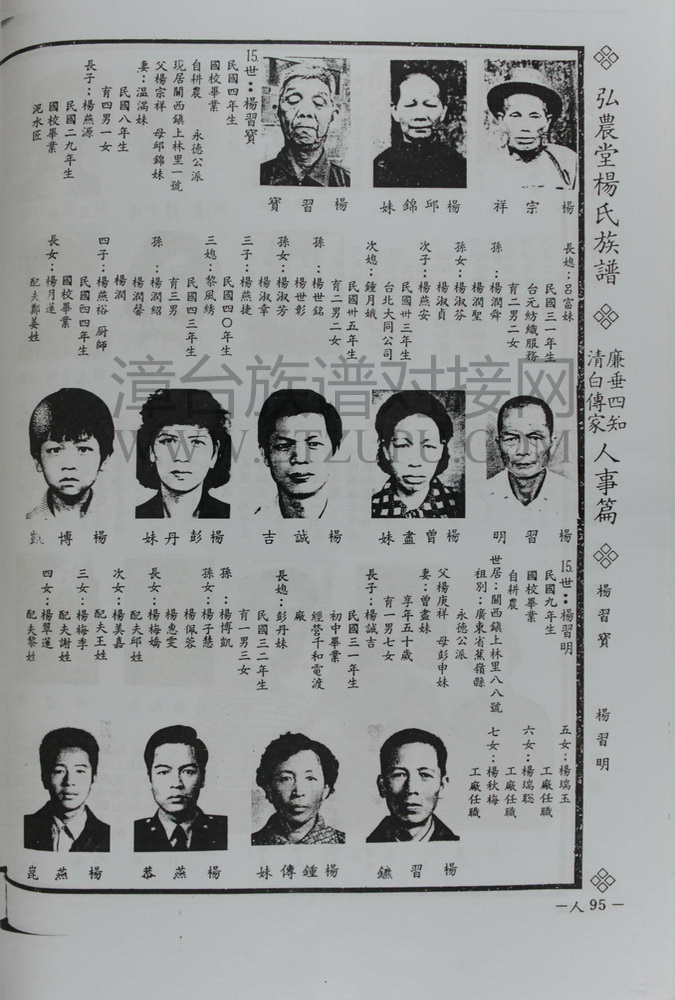 弘農堂楊氏族譜
廉垂四知
清白傳家
人事篇
楊習寶
楊習明
楊宗祥
楊邱錦妹
楊習寶
15.世：楊習寶
民國四年生
國校畢業
自耕農 永德公派
現居關西鎮上林里一號
父楊宗祥 母邱錦妹
妻：温滿妹
民國八年生
育四男一女
長子：楊燕源
民國二九年生
國校畢業
泥水匠
長媳：呂富妹
民國三一年生
台元紡織服務
育二男二女
孫：楊潤舜
楊潤聖
孫女：楊淑芬
楊淑貞
次子：楊燕安
民國卅三年生
台北大同公司
次媳：鍾月娥
民國卅五年生
育二男二女
孫：楊世銘
楊世彰
孫女：楊淑芳
楊淑幸
三子：楊燕捷
民國四〇年生
三媳：黎風綉
民國四三年生
育三男
孫：楊潤紹
楊潤馨
楊潤
四子：楊燕裕 厨師
民國四四年生
國校畢業
長女：楊月蓮
配夫鄭姜姓
楊習明
楊曾盡妹
楊誠吉
楊彭丹妹
楊博凱
15.世：楊習明
民國九年生
國校畢業
自耕農
世居：關西鎮上林里八八號
祖別：廣東省蕉嶺縣
永德公派
父楊庚祥 母彭申妹
妻：曾盡妹
享年五十歲
育一男七女
長子：楊誠吉
民國三一年生
初中畢業
經營千和電渡
廠
長媳：彭丹妹
民國三二年生
育一男三女
孫：楊博凱
孫女：楊子慧
楊佩蓉
楊惠雯
長女：楊梅嬌
配夫邱姓
次女：楊美嘉
配夫王姓
三女：楊梅季
配夫謝姓
四女：楊翠蓮
配夫黎姓
五女：楊瑞玉
工廠任職
六女：楊瑞聡
工廠任職
七女：楊秋梅
工廠任職
楊習鑣
楊鍾傳妹
楊燕恭
楊燕崑
－人95－
漳台族谱对接网